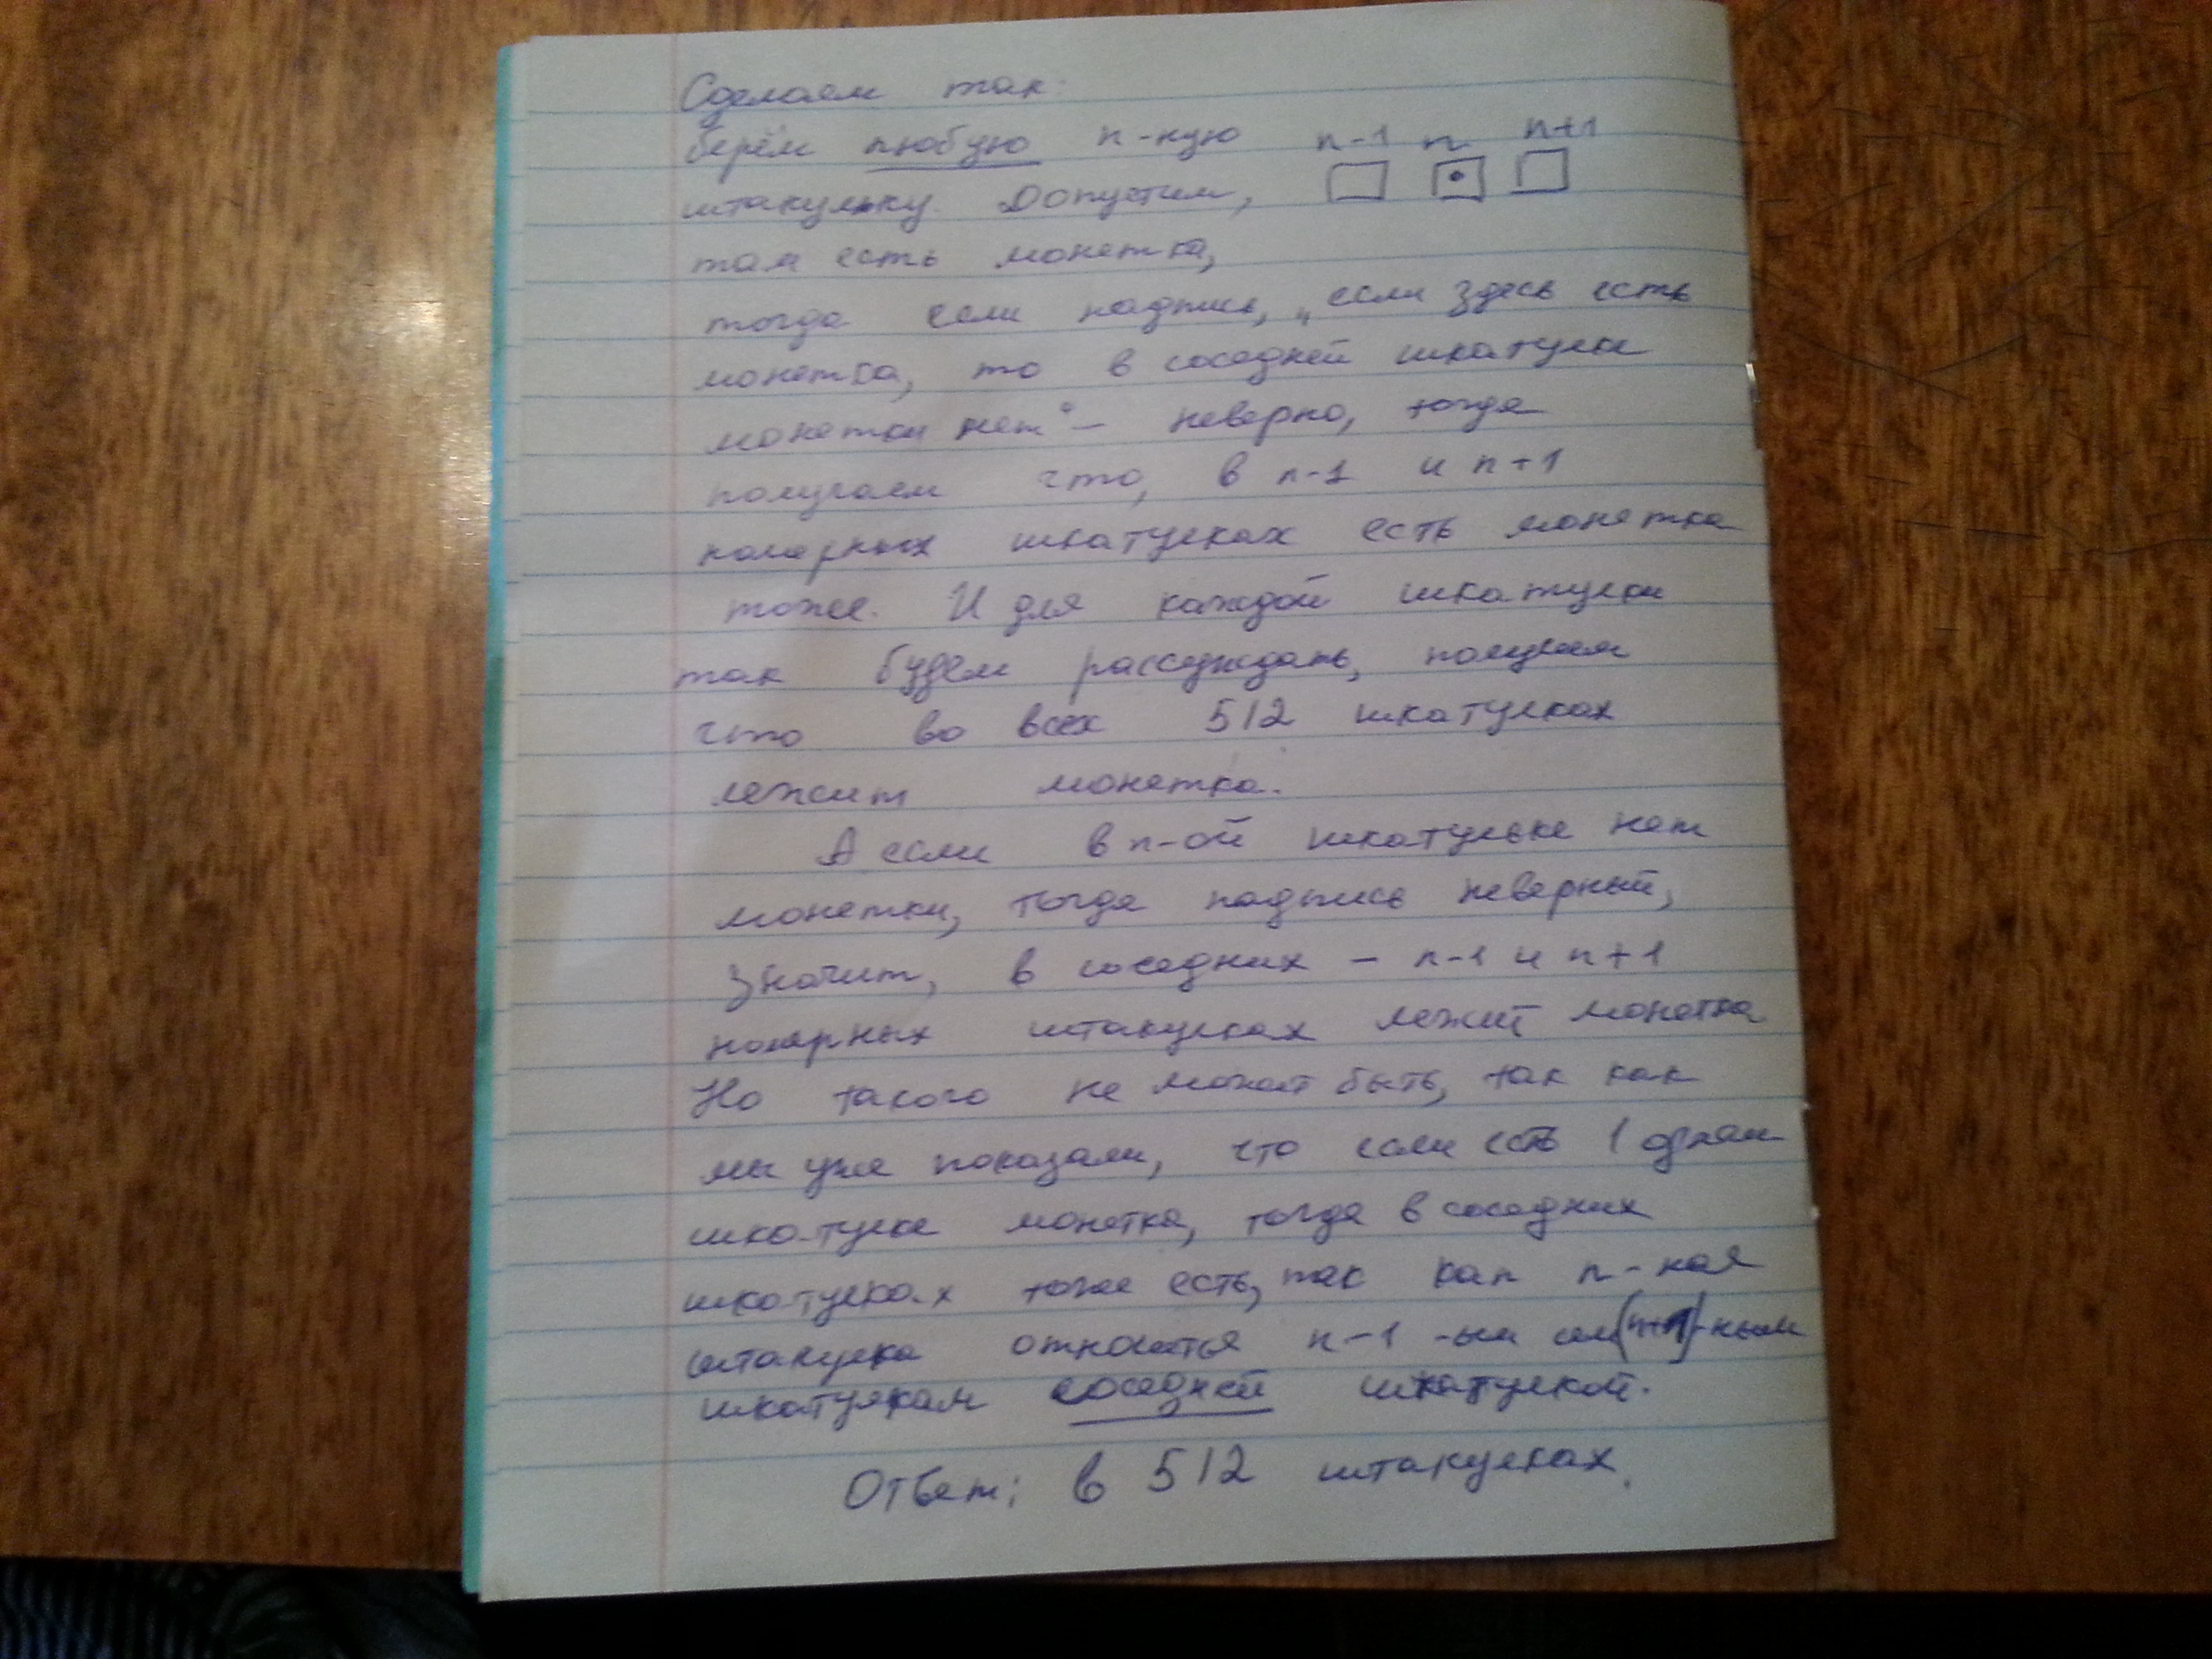 Сделаем так:
берём любую n-ную n-1 n n+1
штакульку. Допустим,
там есть монетка,
тогда если надпись, „если здесь есть
монетка, то в соседней шкатулке
монетки нет" – неверно, тогда
получаем что, в n-1 и n+1
номерных шкатулках есть монетка
тоже. И для каждой шкатулки
так будем рассуждать, получаем
что во всех 512 шкатулках
лежит монетка.
А если в n-ой шкатульке нет
монетки, тогда надпись неверный,
значит, в соседних – n-1 и n+1
номерных штакулках лежит монетка
Но такого не может быть, так как
мы уже показали, что если есть 1
шкатулке монетка, тогда в соседних
шкатулках тоже есть, так как n-ная
штакулка n-1 -ым (n+1)-ным
шкатулкам соседней шкатулкой.
Ответ: в 512 штакулках.